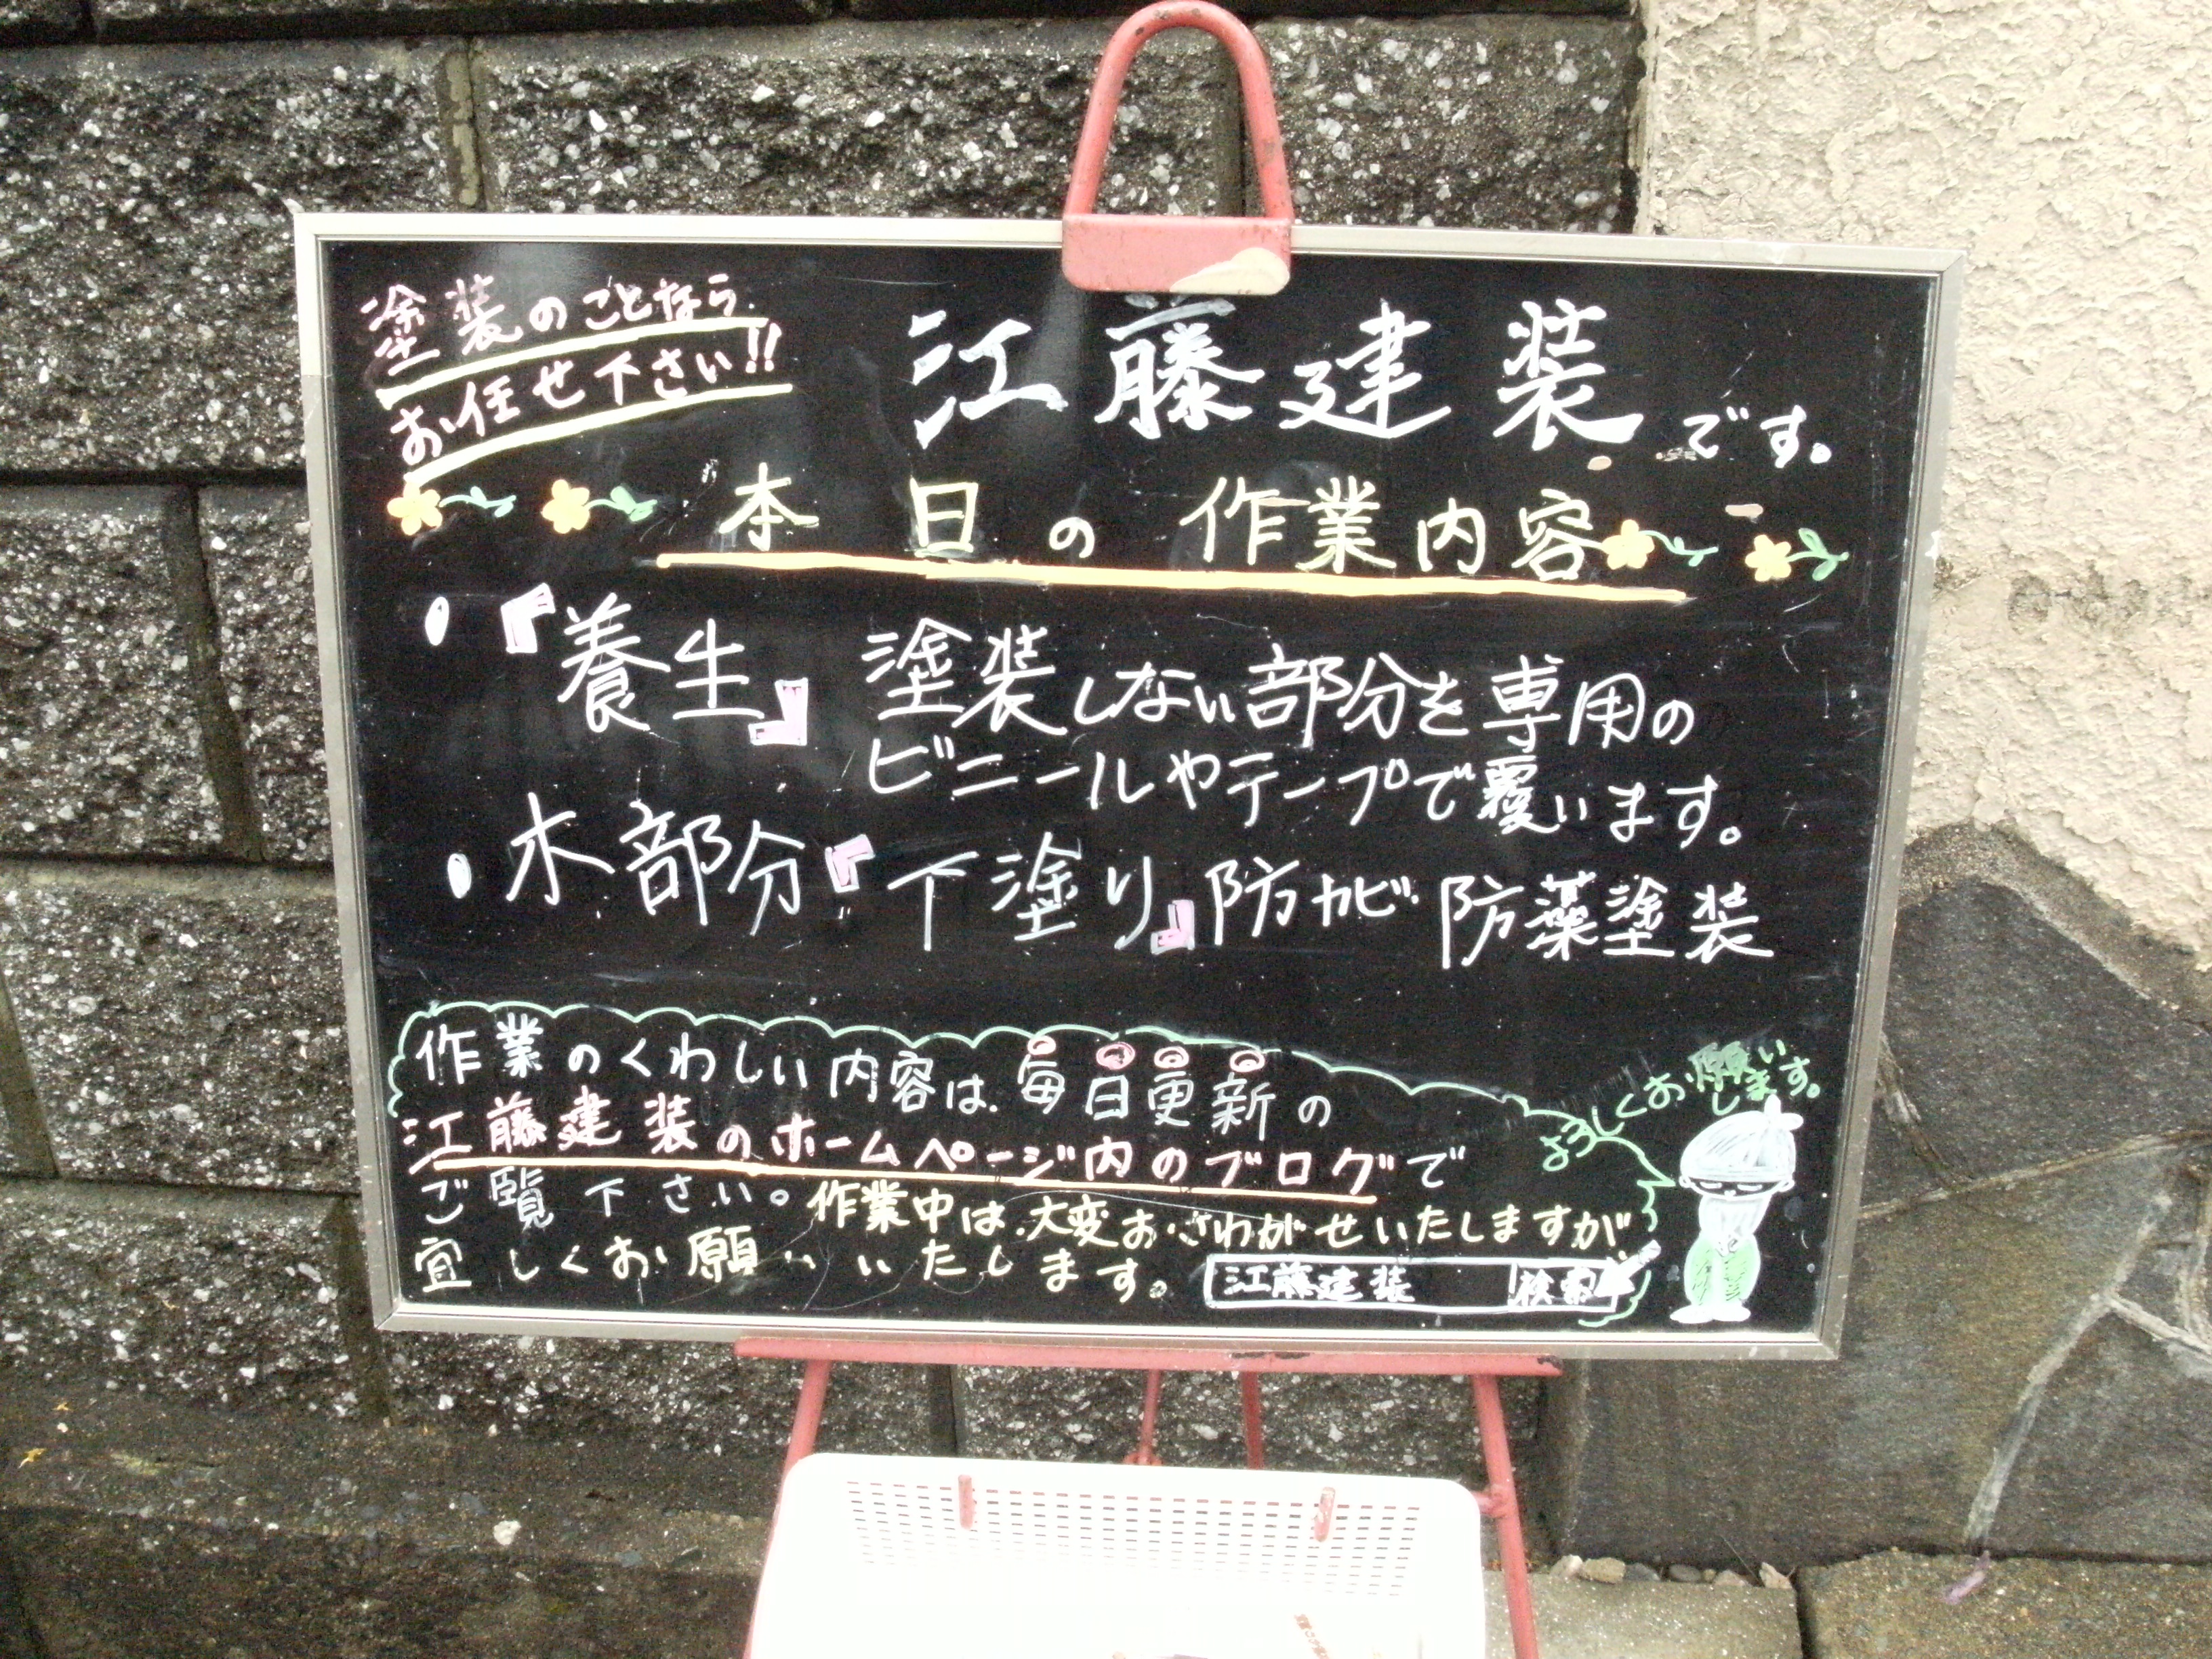 塗装のことなら
お任せ下さい!!
江藤建装です。
本日の作業内容
・『養生』塗装しない部分を専用の
ビニールやテープで覆います。
・木部分『下塗り』防カビ 防藻塗装
作業のくわしい内容は、毎日更新の
江藤建装のホームページ内のブログで
ご覧下さい。作業中は、大変おさわがせいたしますが
宜しくお願いいたします。
江藤建装 検索
よろしくお願い
します。